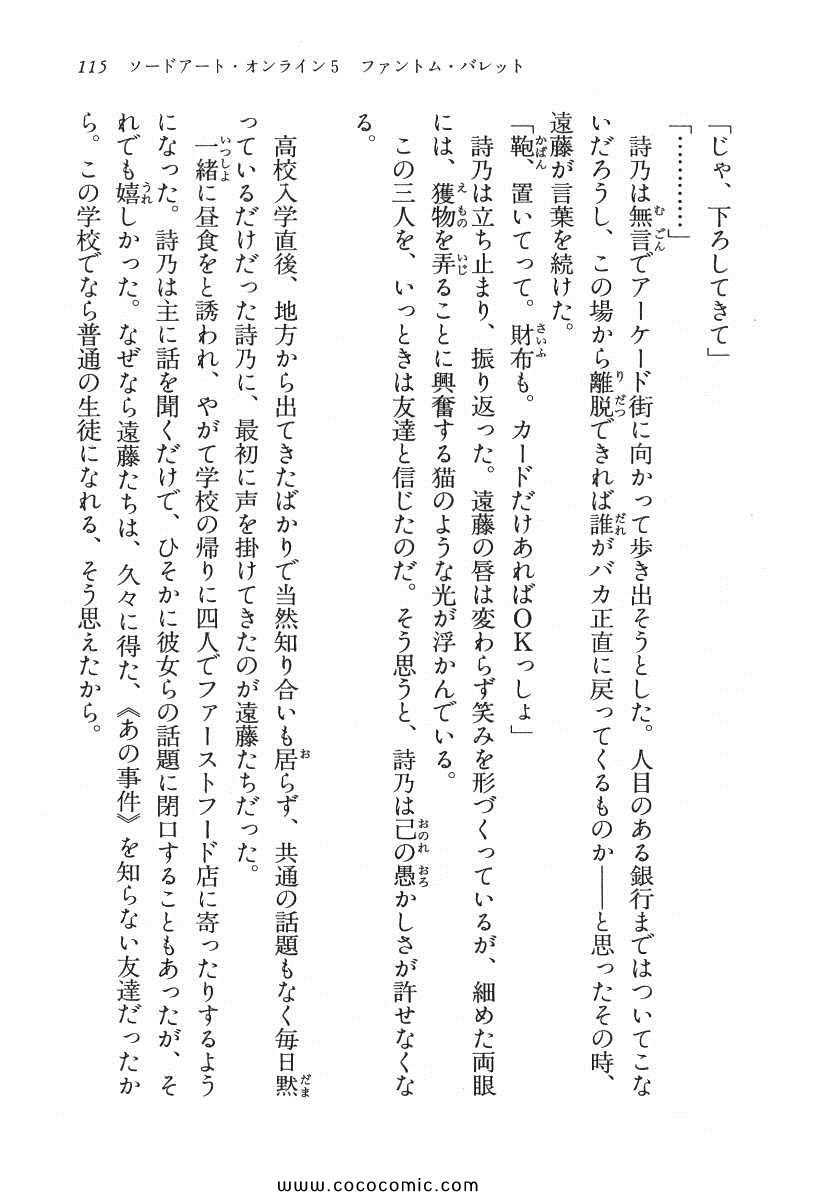 115 ソードアート・オンライン5 ファントム・バレット
「じゃ、下ろしてきて」
「…………」
詩乃は無言でアーケード街に向かって歩き出そうとした。人目のある銀行まではついてこな
いだろうし、この場から離脱できれば誰がバカ正直に戻ってくるものか――と思ったその時、
遠藤が言葉を続けた。
「鞄、置いてって。財布も。カードだけあればOKっしょ」
詩乃は立ち止まり、振り返った。遠藤の唇は変わらず笑みを形づくっているが、細めた両眼
には、獲物を弄ることに興奮する猫のような光が浮かんでいる。
この三人を、いっときは友達と信じたのだ。そう思うと、詩乃は己の愚かしさが許せなくな
る。
高校入学直後、地方から出てきたばかりで当然知り合いも居らず、共通の話題もなく毎日黙
っているだけだった詩乃に、最初に声を掛けてきたのが遠藤たちだった。
一緒に昼食をと誘われ、やがて学校の帰りに四人でファーストフード店に寄ったりするよう
になった。詩乃は主に話を聞くだけで、ひそかに彼女らの話題に閉口することもあったが、そ
れでも嬉しかった。なぜなら遠藤たちは、久々に得た、《あの事件》を知らない友達だったか
ら。この学校でなら普通の生徒になれる、そう思えたから。
www.cococomic.com